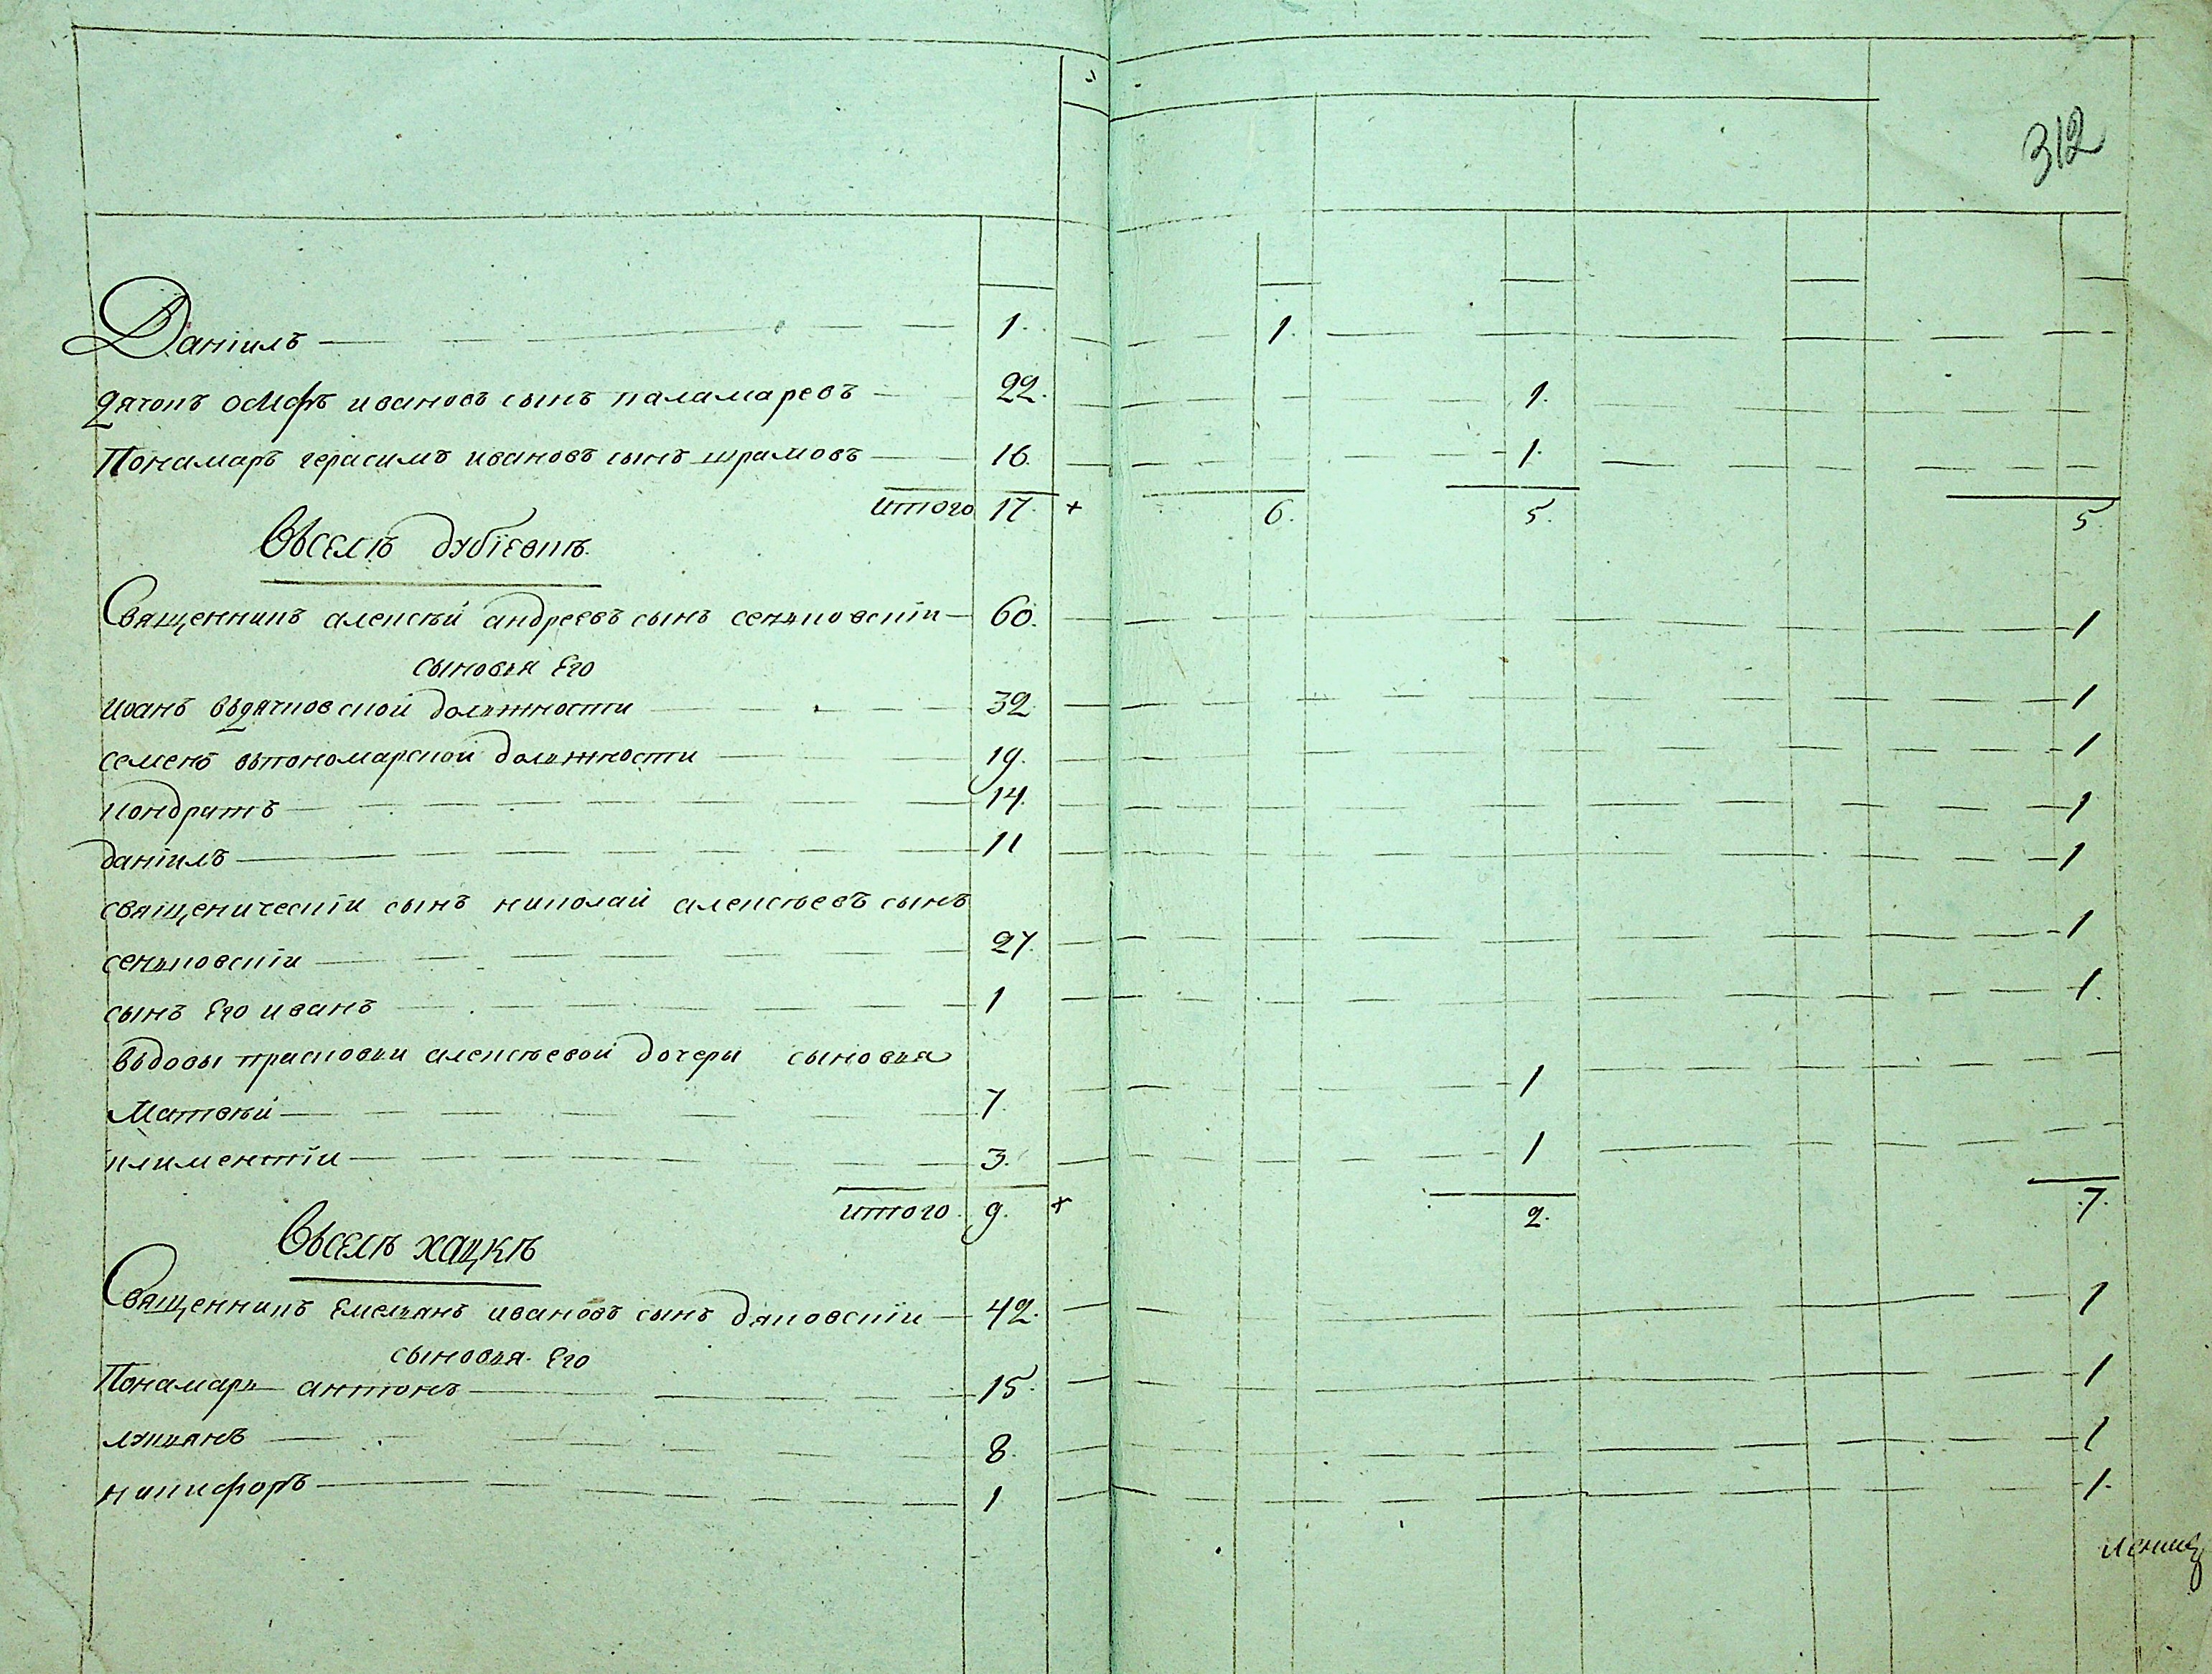 312
Даніилъ — 1. — 1. —
Дячокъ осифъ ивановъ сынъ паламаревъ — 22. — 1. —
Понамаръ герасимъ ивановъ сынъ шрамовъ — 16. — 1. —
итого 17. + 6. 5. 5.
Въселѣ дубіевкѣ.
Священникъ алексѣй андреевъ сынъ сеньковскіи — 60. — 1
сыновья Его
иванъ въдячковской должности — 32 — 1
семенъ въпономарской должности — 19. — 1
кондратъ — 14. — 1
даніилъ — 11 — 1
священическіи сынъ николай алексѣевъ сынъ
сеньковскіи — 27. — 1
сынъ Его иванъ — 1 — 1.
въдовы прасковьи алексѣевой дочери сыновья
Матвѣй — 7. — 1 —
климентіи — 3. — 1 —
итого 9. + 2. 7.
Въселѣ хацкѣ
Священникъ Емельянъ ивановъ сынъ дяковскіи — 42. — 1
сыновья Его
Понамарь антонъ — 15. — 1
лукьянъ — 8. — 1
никифоръ — 1 — 1.